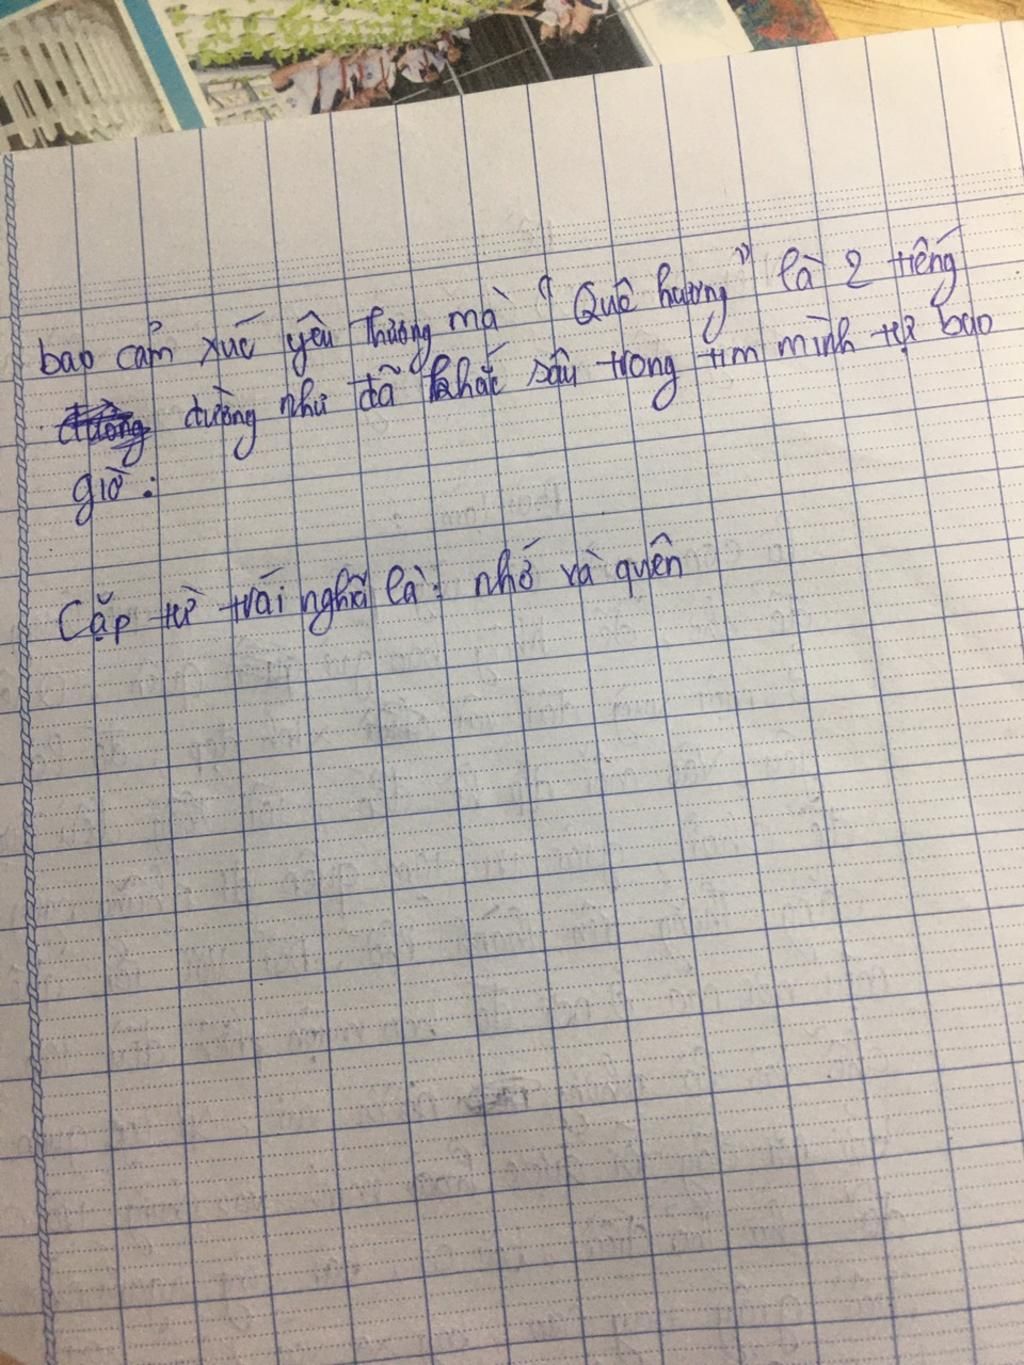 bao cảm xúc yêu thương mà " Quê hương " là 2 tiếng
dường như đã khắc sâu trong tim mình tự bao
giờ.
Cặp từ trái nghĩa là: nhớ và quên